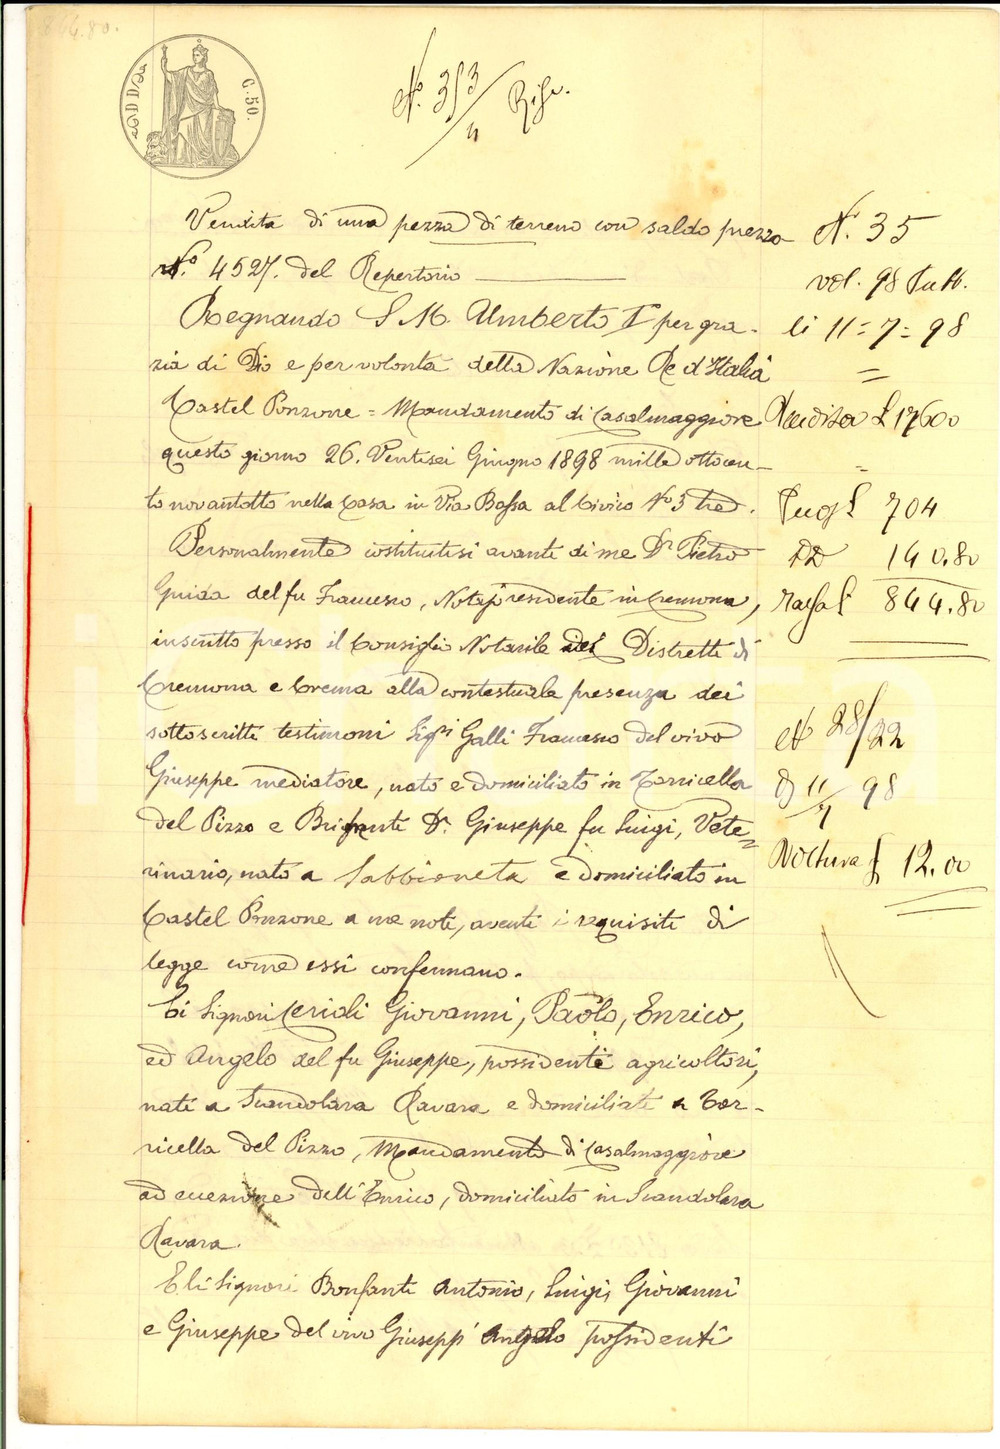 864.80.
C. 50.
N.° 353/4 Rife.
Vendita di una pezza di terreno con saldo prezzo
N.° 4527. del Repertorio
Regnando S. M. Umberto I° per gra-
zia di Dio e per volontà della Nazione Re d'Italia
Castel Ponzone = Mandamento di Casalmaggiore
questo giorno 26. Ventisei Giugno 1898 mille ottocen-
to novantotto nella Casa in Via Bassa al Civico N° 3 tre.
Personalmente costituitisi avanti di me Dr Pietro
Guida del fu Francesco, Notajo residente in Cremona,
inscritto presso il Consiglio Notarile dei Distretti di
Cremona e Crema alla contestuale presenza dei
sottoscritti testimoni Sigri Galli Francesco del vivo
Giuseppe mediatore, nato e domiciliato in Torricella
del Pizzo e Brifanti Dr. Giuseppe fu Luigi, Vete=
rinario, nato a Sabbioneta e domiciliato in
Castel Ponzone a me noti, aventi i requisiti di
legge come essi confermano.
Li Signori Ceridi Giovanni, Paolo, Enrico,
ed Angelo del fu Giuseppe, possidenti agricoltori,
nati a Scandolara Ravara e domiciliati a Tor-
ricella del Pizzo, Mandamento di Casalmaggiore
ad eccezione dell'Enrico, domiciliato in Scandolara
Ravara.
E li Signori Bonfanti Antonio, Luigi, Giovanni
e Giuseppe del vivo Giuseppe Angelo possidenti
N. 35
vol. 98 Pubb.
li 11=7=98
=
Vendita £ 17600
=
704
DD 140.80
£ 844.80
N 28/22
11/7 98
Voltura £ 12.00